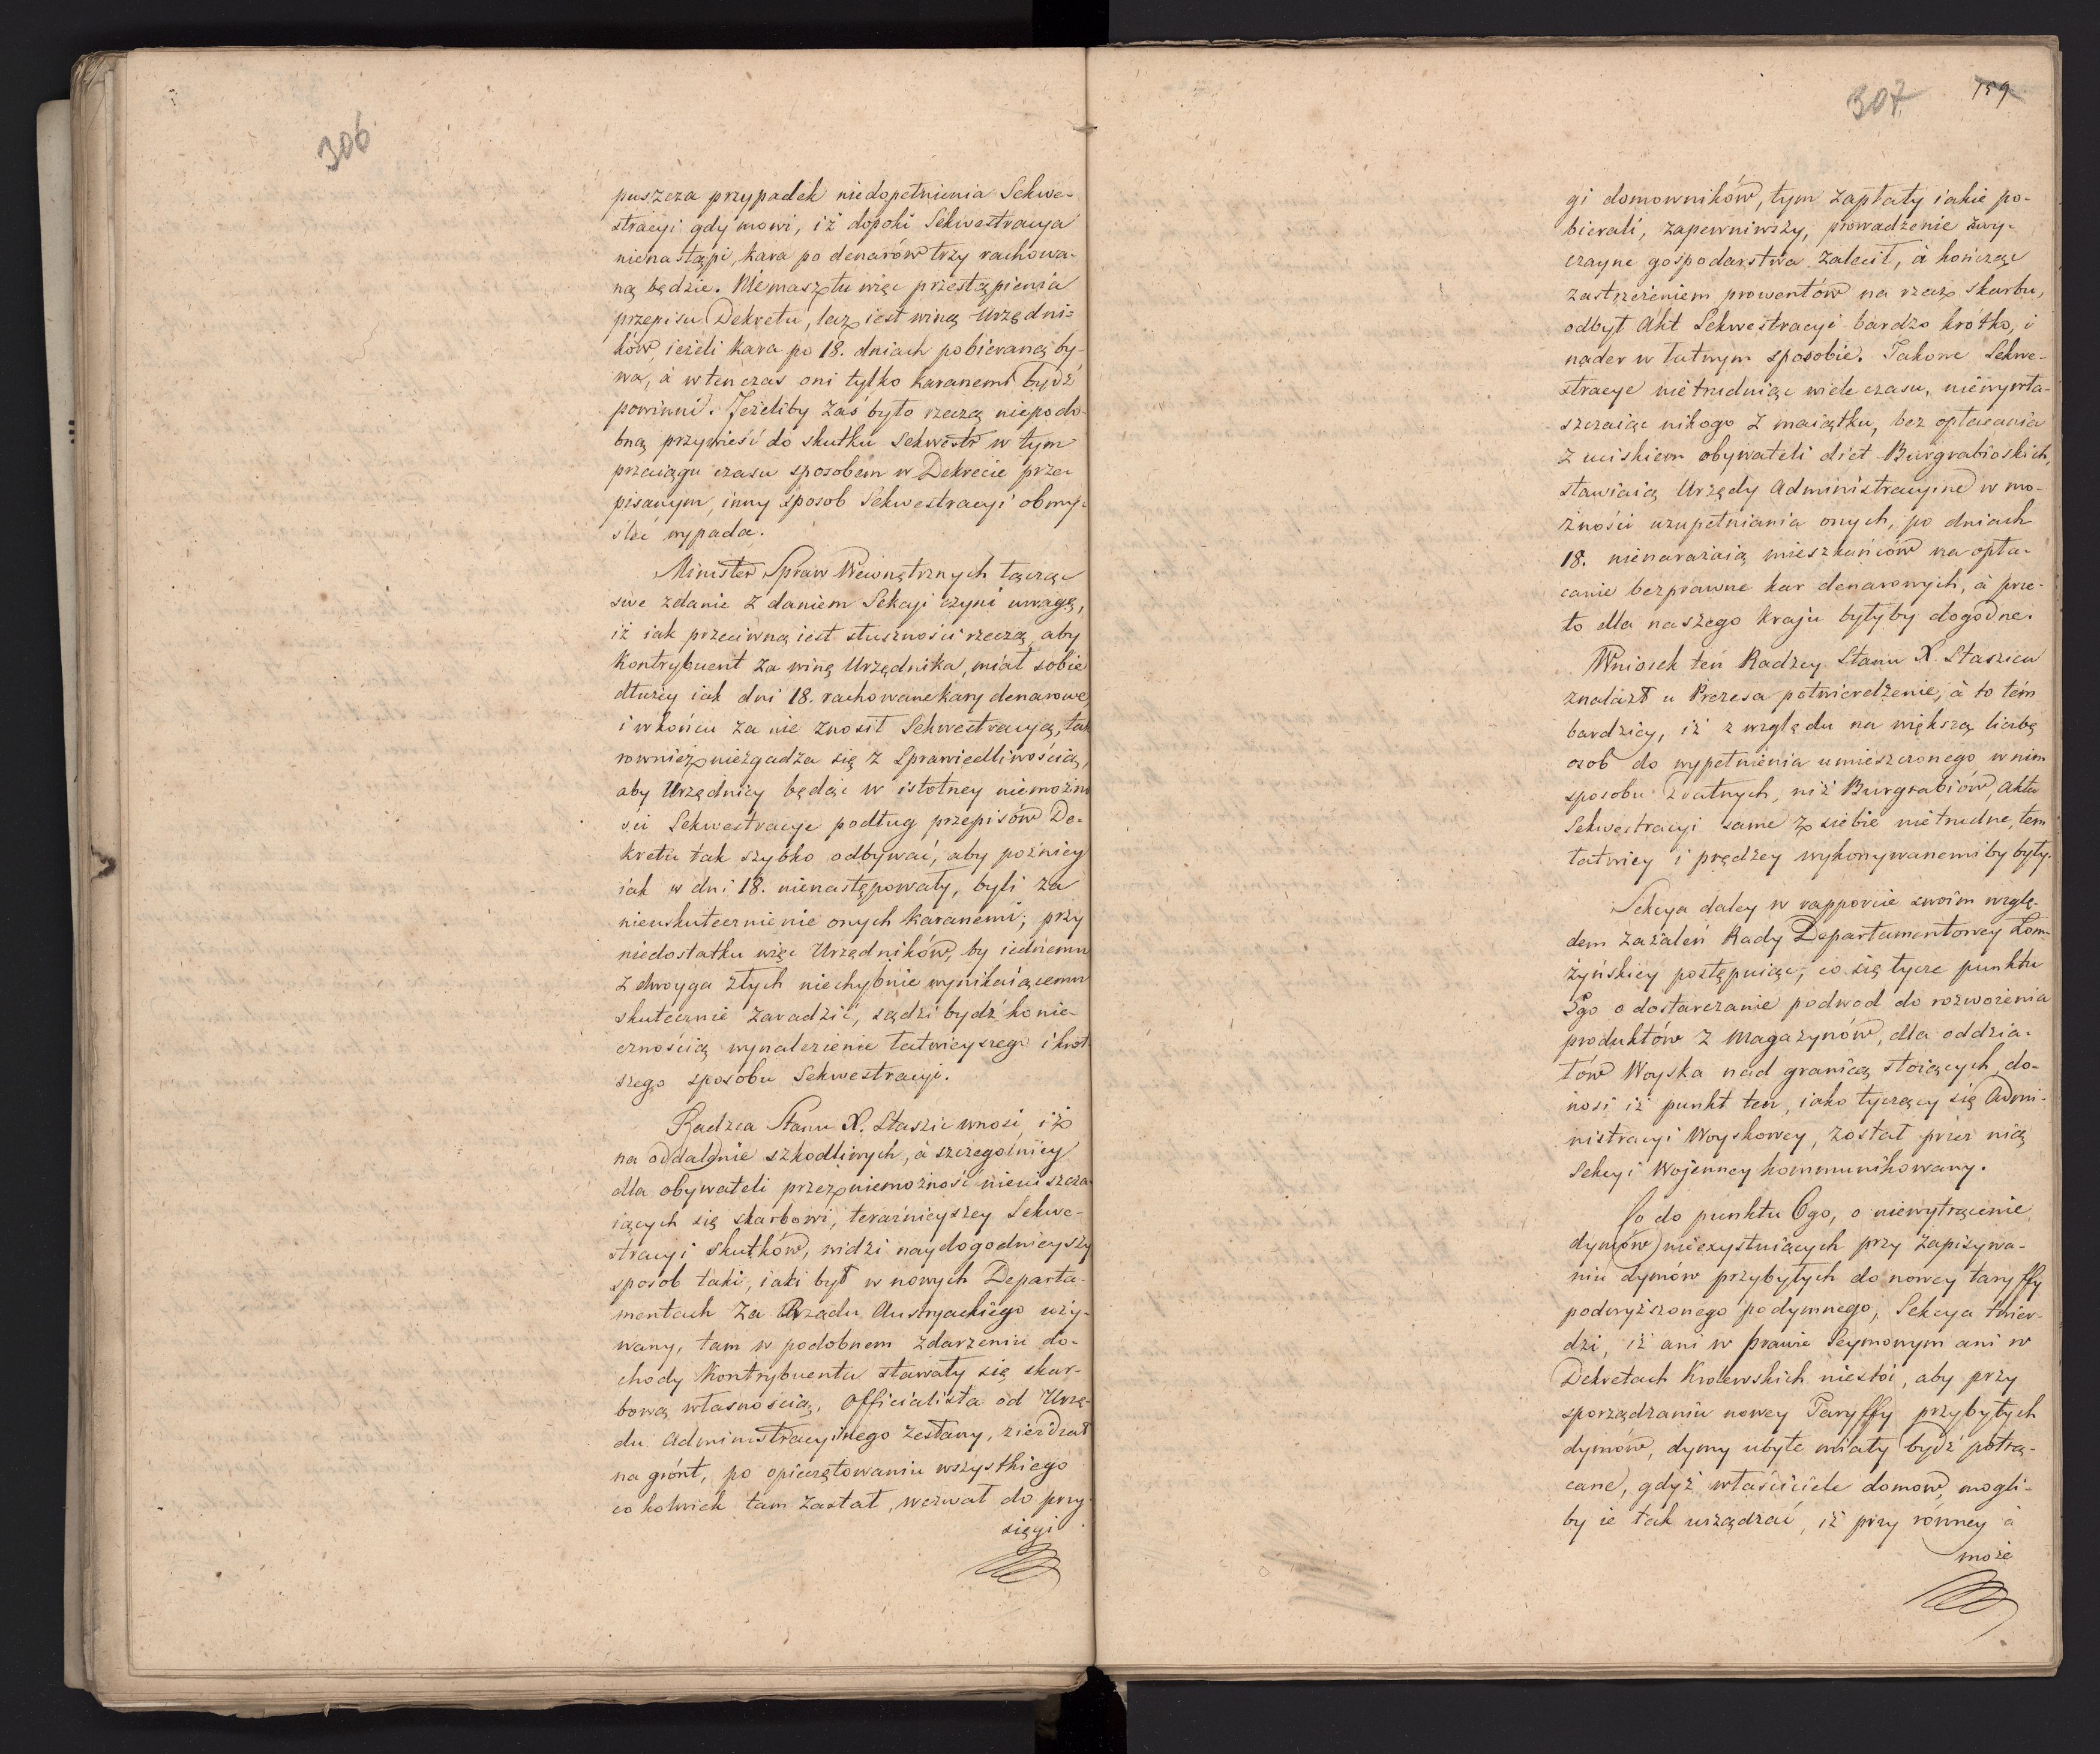 306
puszcza przypadek niedopełnienia Sekwe-
stracyi gdy mowi, iż dopoki Sekwestracya
nienastąpi, kara po denarów trzy rachowa-
ną będzie. Niemasz tu więc przestąpienia
przepisu Dekretu, lecz iest winą Urzędni-
ków, ieżeli kara po 18. dniach pobieraną by-
wa, à wtenczas oni tylko karanemi bydź
powinni. Jeżeliby zaś było rzeczą niepodo-
bną przywieść do skutku Sekwestr w tym
przeciągu czasu sposobem w Dekrecie prze-
pisanym, inny sposob Sekwestracyi obmy-
ślić wypada.
Minister Spraw Wewnętrznych łącząc
swe zdanie z daniem Sekcyi czyni uwagę,
iż iak przeciwną iest słuszności rzeczą, aby
Kontrybuent za winę Urzędnika, miał sobie
dłużey iak dni 18. rachowane kary denarowe,
i wkońcu za nie znosił Sekwestracyą, tak
rownież niezgadza się z Sprawiedliwością,
aby Urzędnicy będąc w istotney niemożno
ści Sekwestracye podług przepisów De-
kretu tak szybko odbywać, aby pozniey
iak w dni 18. nienastępowały, byli za
nieuskutecznienie onych karanemi; przy
niedostatku więc Urzędników, by iednemu
z dwoyga złych niechybnie wynikaiącemu
skutecznie zaradzić, sądzi bydź konie-
cznością wynalezienie łatwieyszego i krót
szego sposobu Sekwestracyi.
Radzca Stanu X. Staszic wnosi, iż
na oddalenie szkodliwych, à szczegolniey
dla obywateli przez niemożność nieuiszcza-
iących się skarbowi, teraźnieyszey Sekwe-
stracyi skutków, widzi naydogodnieyszy
sposob taki, iaki był w nowych Departa-
mentach za Rządu Austryackiego uży-
wany, tam w podobnem zdarzeniu do-
chody Kontrybuenta stawały się skar-
bową własnością, Officialista od Urzę-
du Administracyinego zesłany, zieżdżał
na grónt, po opieczętowaniu wszystkiego
co kolwiek tam zastał, wezwał do przy
sięgi
307 159
gi domowników, tym zapłaty iakie po-
bierali, zapewniwszy, prowadzenie zwy-
czayne gospodarstwa zalecił, à kończąc
zastrzeżeniem prowentów na rzecz skarbu,
odbył Akt Sekwestracyi bardzo krótko, i
nader w łatwym sposobie. Takowe Sekwe-
stracye nietrudniąc wiele czasu, niewywła-
szczaiąc nikogo z maiątku, bez opłacania
z uciskiem obywateli diet Burgrabioskich,
stawiaią Urzędy Administracyine w mo-
żności uzupełniania onych, po dniach
18. nienarażaią mieszkańców na opła-
canie bezprawne kar denarowych, à prze-
to dla naszego kraju byłyby dogodne.
Wniosek ten Radzcy Stanu X. Staszica
znalazł u Prezesa potwierdzenie, à to tém
bardziey, iż z względu na większą liczbę
osob do wypełnienia umieszczonego w nim
sposobu zdatnych, niż Burgrabiów, akta
Sekwestracyi same z siebie nietrudne, tem
łatwiey i prędzey wykonywanemiby były.
Sekcya daley w rapporcie swoim wzglę-
dem zażaleń Rady Departamentowey Łom-
żyńskiey postępuiąc, co się tycze punktu
5go o dostarczanie podwod do rozwożenia
produktów z Magazynów, dla oddzia-
łów Woyska nad granicą stoiących, do-
nosi iż punkt ten, iako tyczący się Admi-
nistracyi Woyskowey, został przez nią
Sekcyi Wojenney kommunikowany.
Co do punktu 6go, o niewytrącenie
dymów nieexystuiących przy zapisywa-
niu dymów przybyłych do nowey taryffy
podwyższonego podymnego, Sekcya twier-
dzi, iż ani w prawie Seymowym ani w
Dekretach Krolewskich niestoi, aby przy
sporządzaniu nowey Taryffy przybyłych
dymów, dymy ubyłe miały bydź potrą-
cane, gdyż właściciele domow, mogli-
by ie tak urządzać, iż przy równey à
może